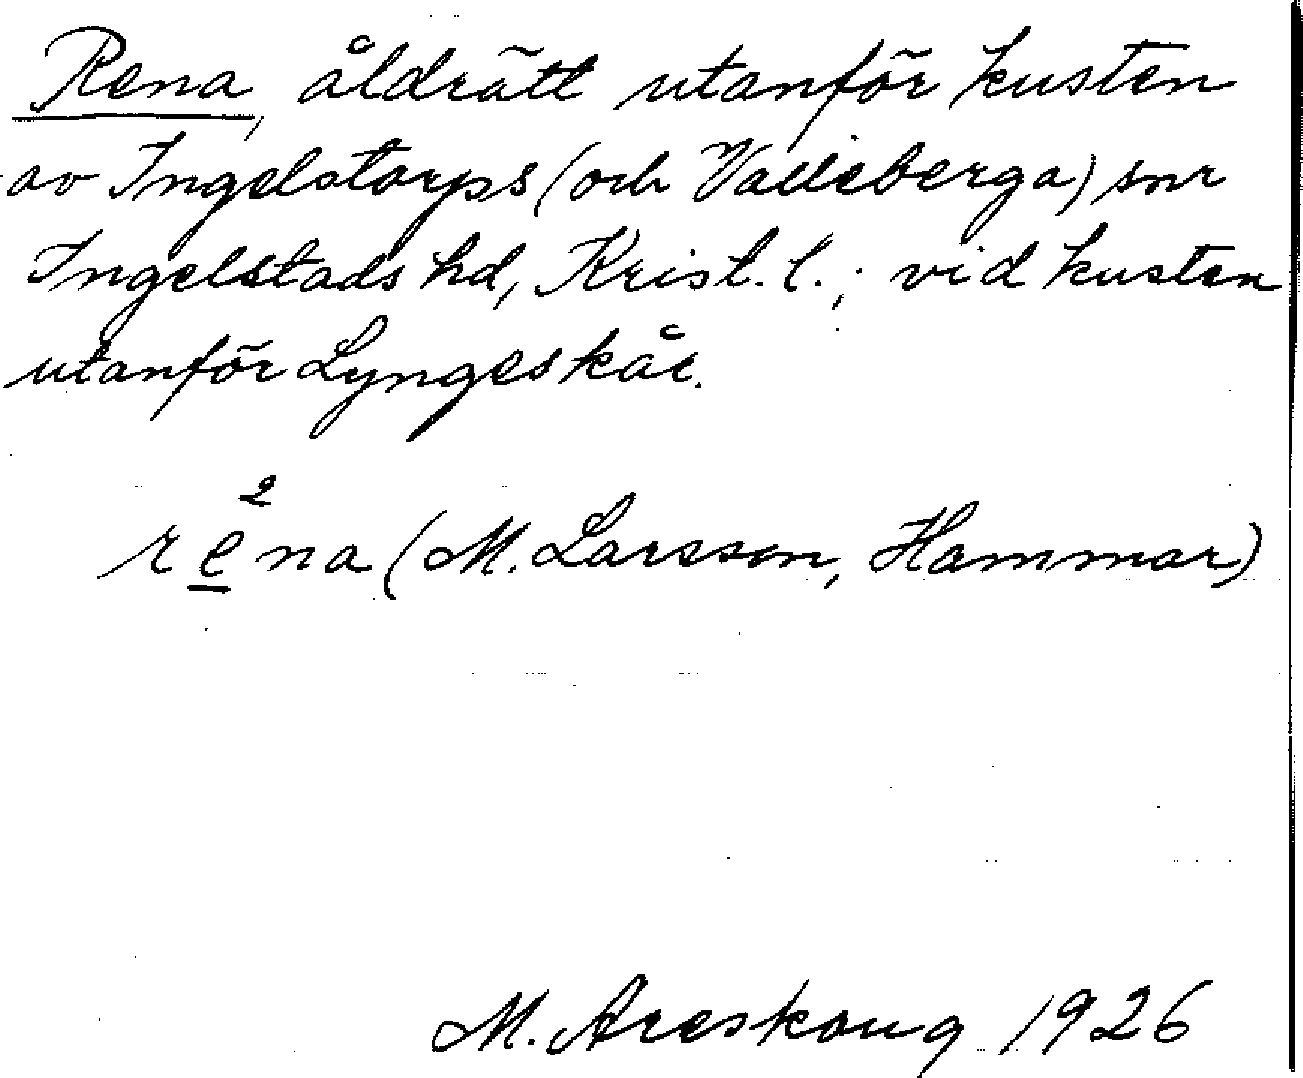 Rena, åldrätt utanför kusten
av Ingelstorps (och Valleberga) snr
Ingelstads hd, Krist. l.; vid kusten
utanför Lyngeskår.
re̲²na (M. Larsson, Hammar)
M. Areskoug 1926